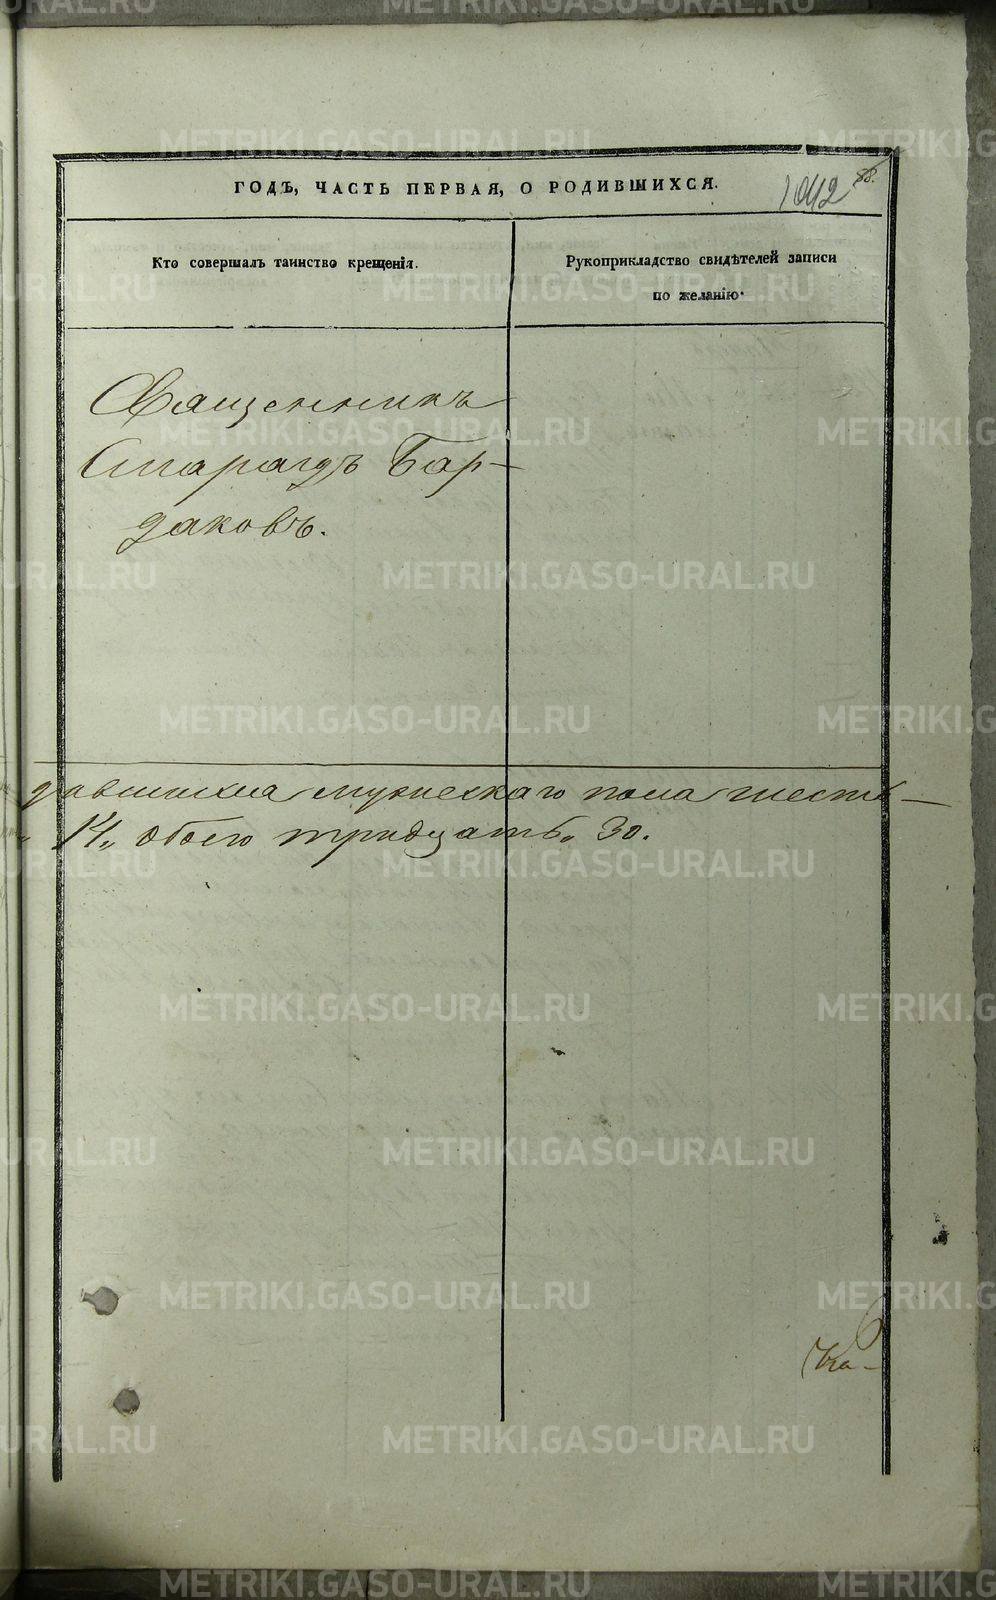 ГОДЪ, ЧАСТЬ ПЕРВАЯ, О РОДИВШИХСЯ.
1042 88.
Кто совершалъ таинство крещенія.
Рукоприкладство свидѣтелей записи
по желанію.
Священникъ
Смарагдъ Бар-
даковъ.
дившихся мужескаго пола шест-
14, обоего тридцать, 30.
METRIKI.GASO-URAL.RU